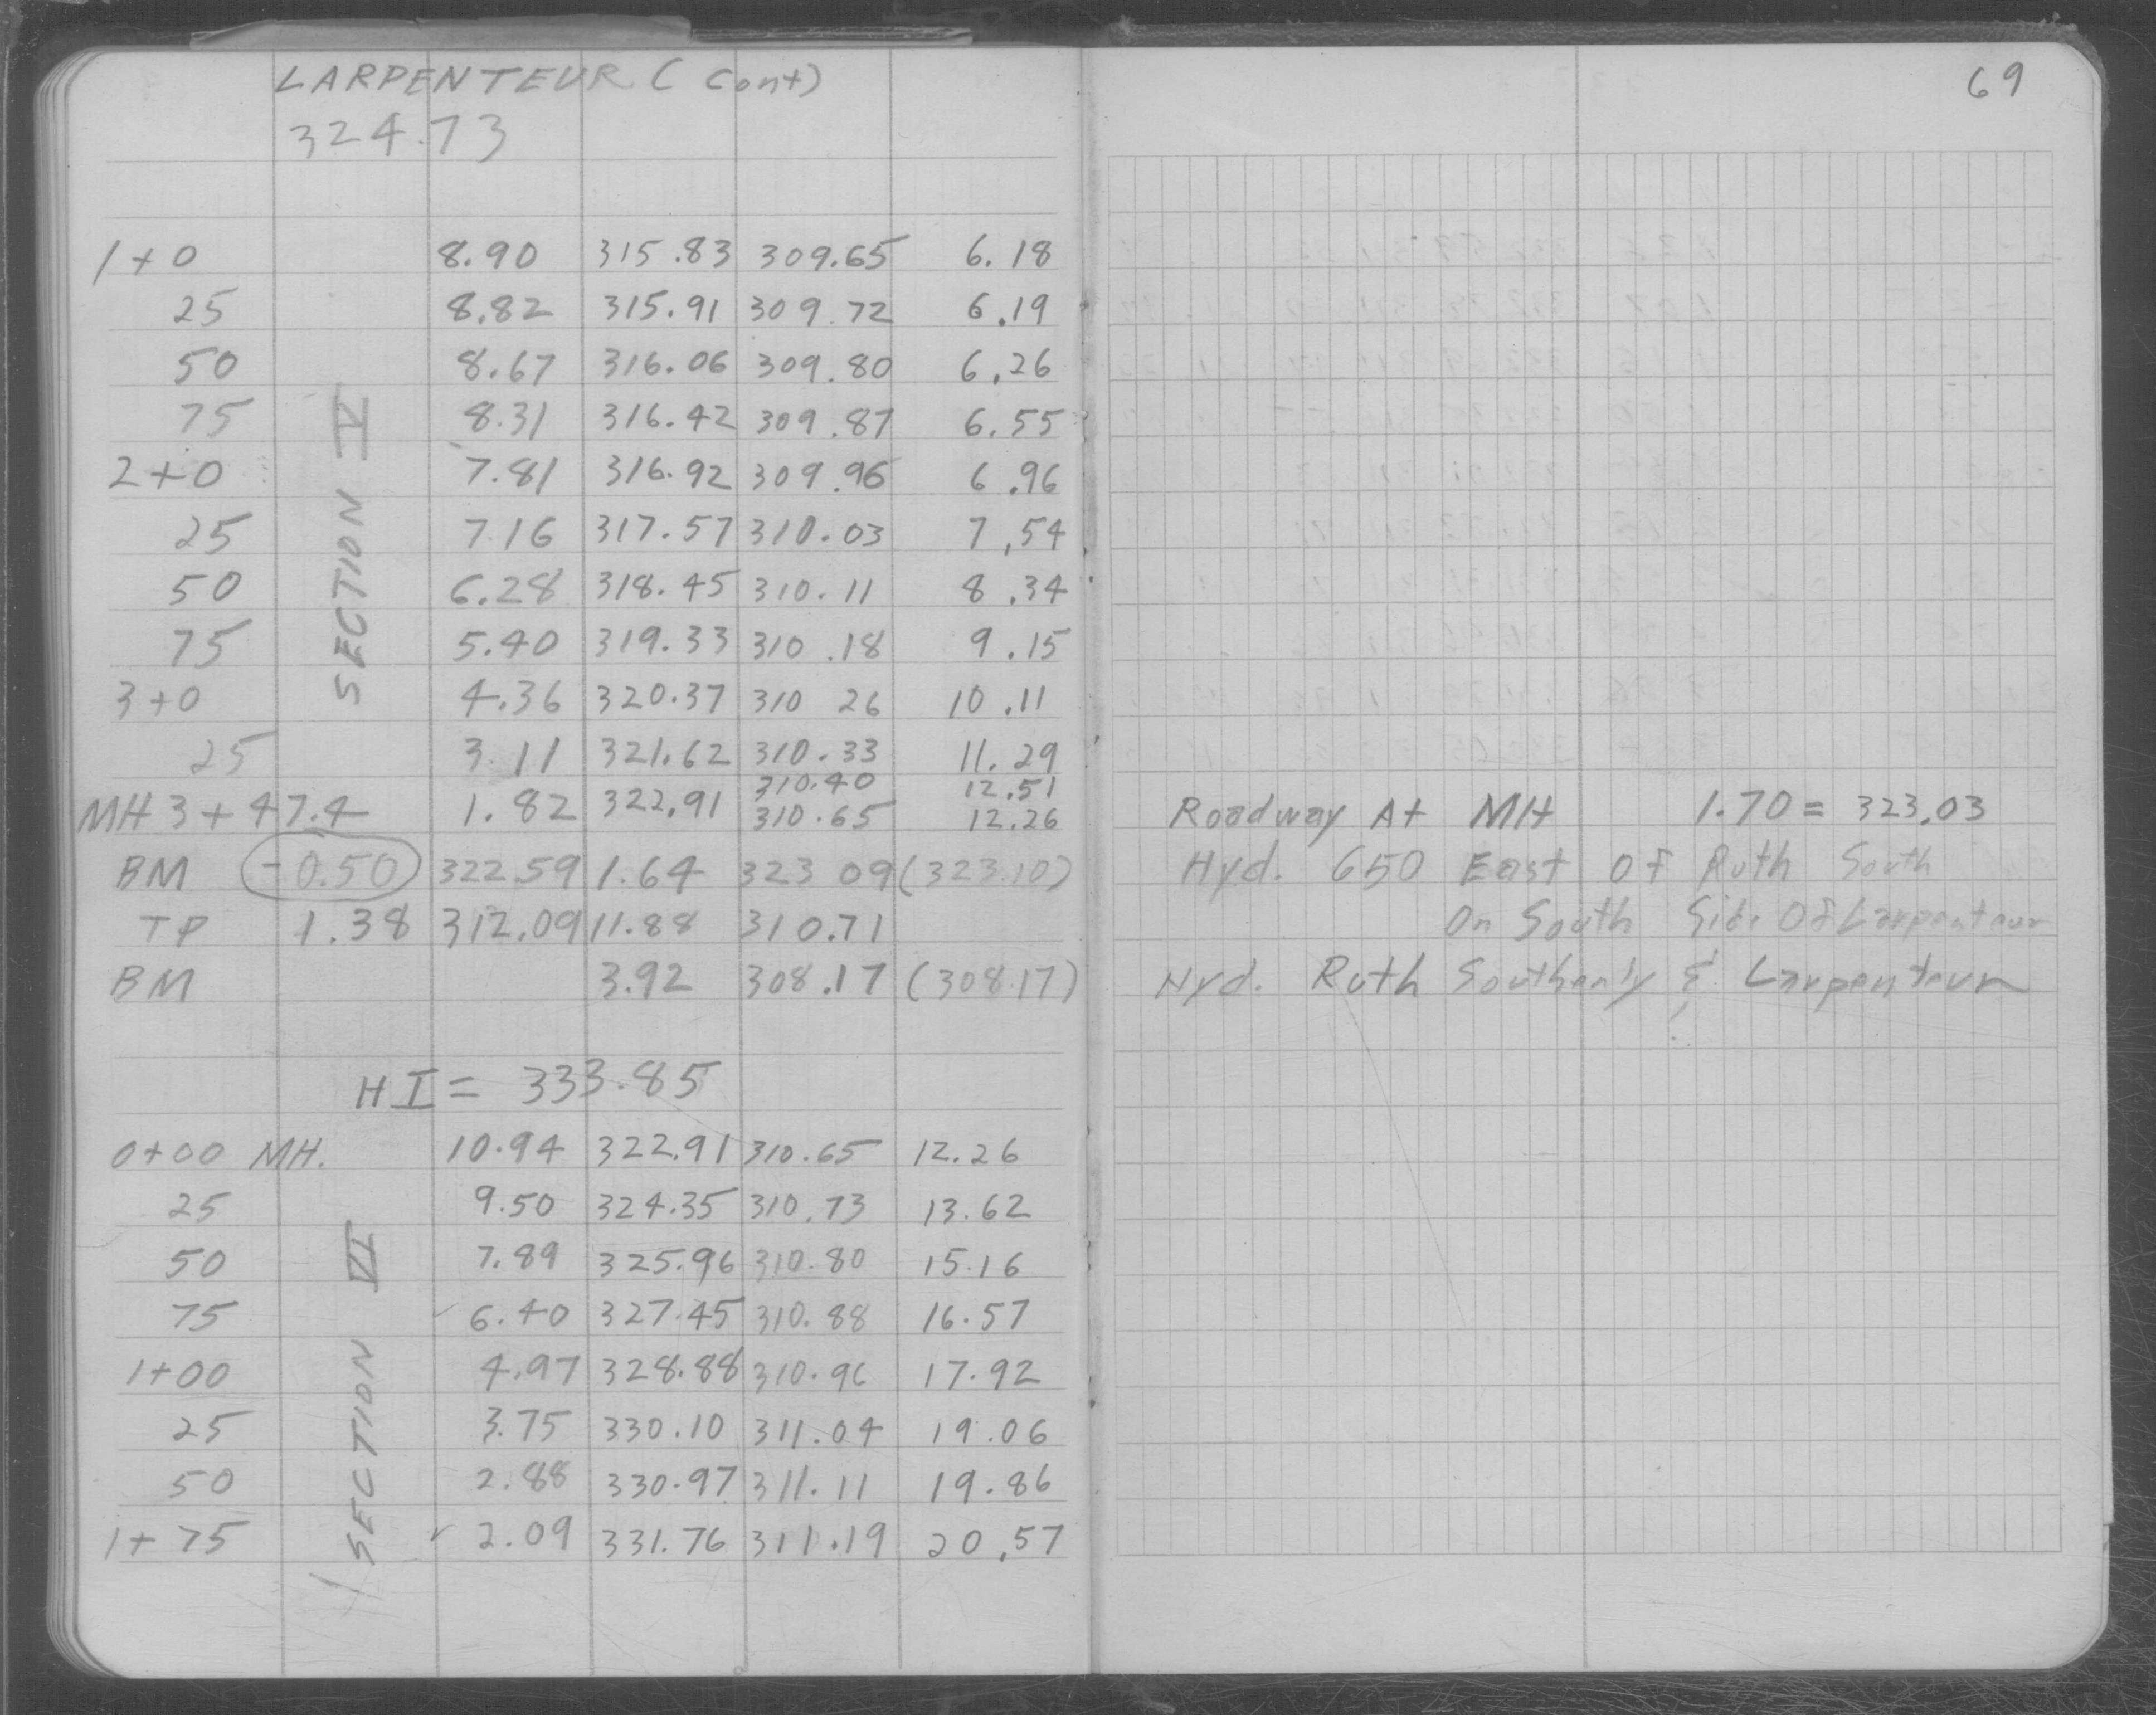 69
LARPENTEUR (Cont)
324.73
1+0 8.90 315.83 309.65 6.18
25 8.82 315.91 309.72 6.19
50 8.67 316.06 309.80 6.26
75 8.31 316.42 309.87 6.55
2+0 7.81 316.92 309.96 6.96
25 7.16 317.57 310.03 7.54
50 6.28 318.45 310.11 8.34
75 5.40 319.33 310.18 9.15
3+0 4.36 320.37 310 26 10.11
25 3.11 321.62 310.33 11.29
SECTION V
310.40 12.51
MH 3+47.4 1.82 322.91 310.65 12.26 Roadway At MH 1.70 = 323.03
BM -0.50 322.59 1.64 323 09 (323.10) Hyd. 650 East Of Ruth South
TP 1.38 312.09 11.88 310.71 On South Side Of Larpenteur
BM 3.92 308.17 (308.17) Hyd. Ruth Southerly & Larpenteur
HI = 333.85
0+00 MH. 10.94 322.91 310.65 12.26
25 9.50 324.35 310.73 13.62
50 7.89 325.96 310.80 15.16
75 6.40 327.45 310.88 16.57
1+00 4.97 328.88 310.96 17.92
25 3.75 330.10 311.04 19.06
50 2.88 330.97 311.11 19.86
1+75 2.09 331.76 311.19 20.57
SECTION VI